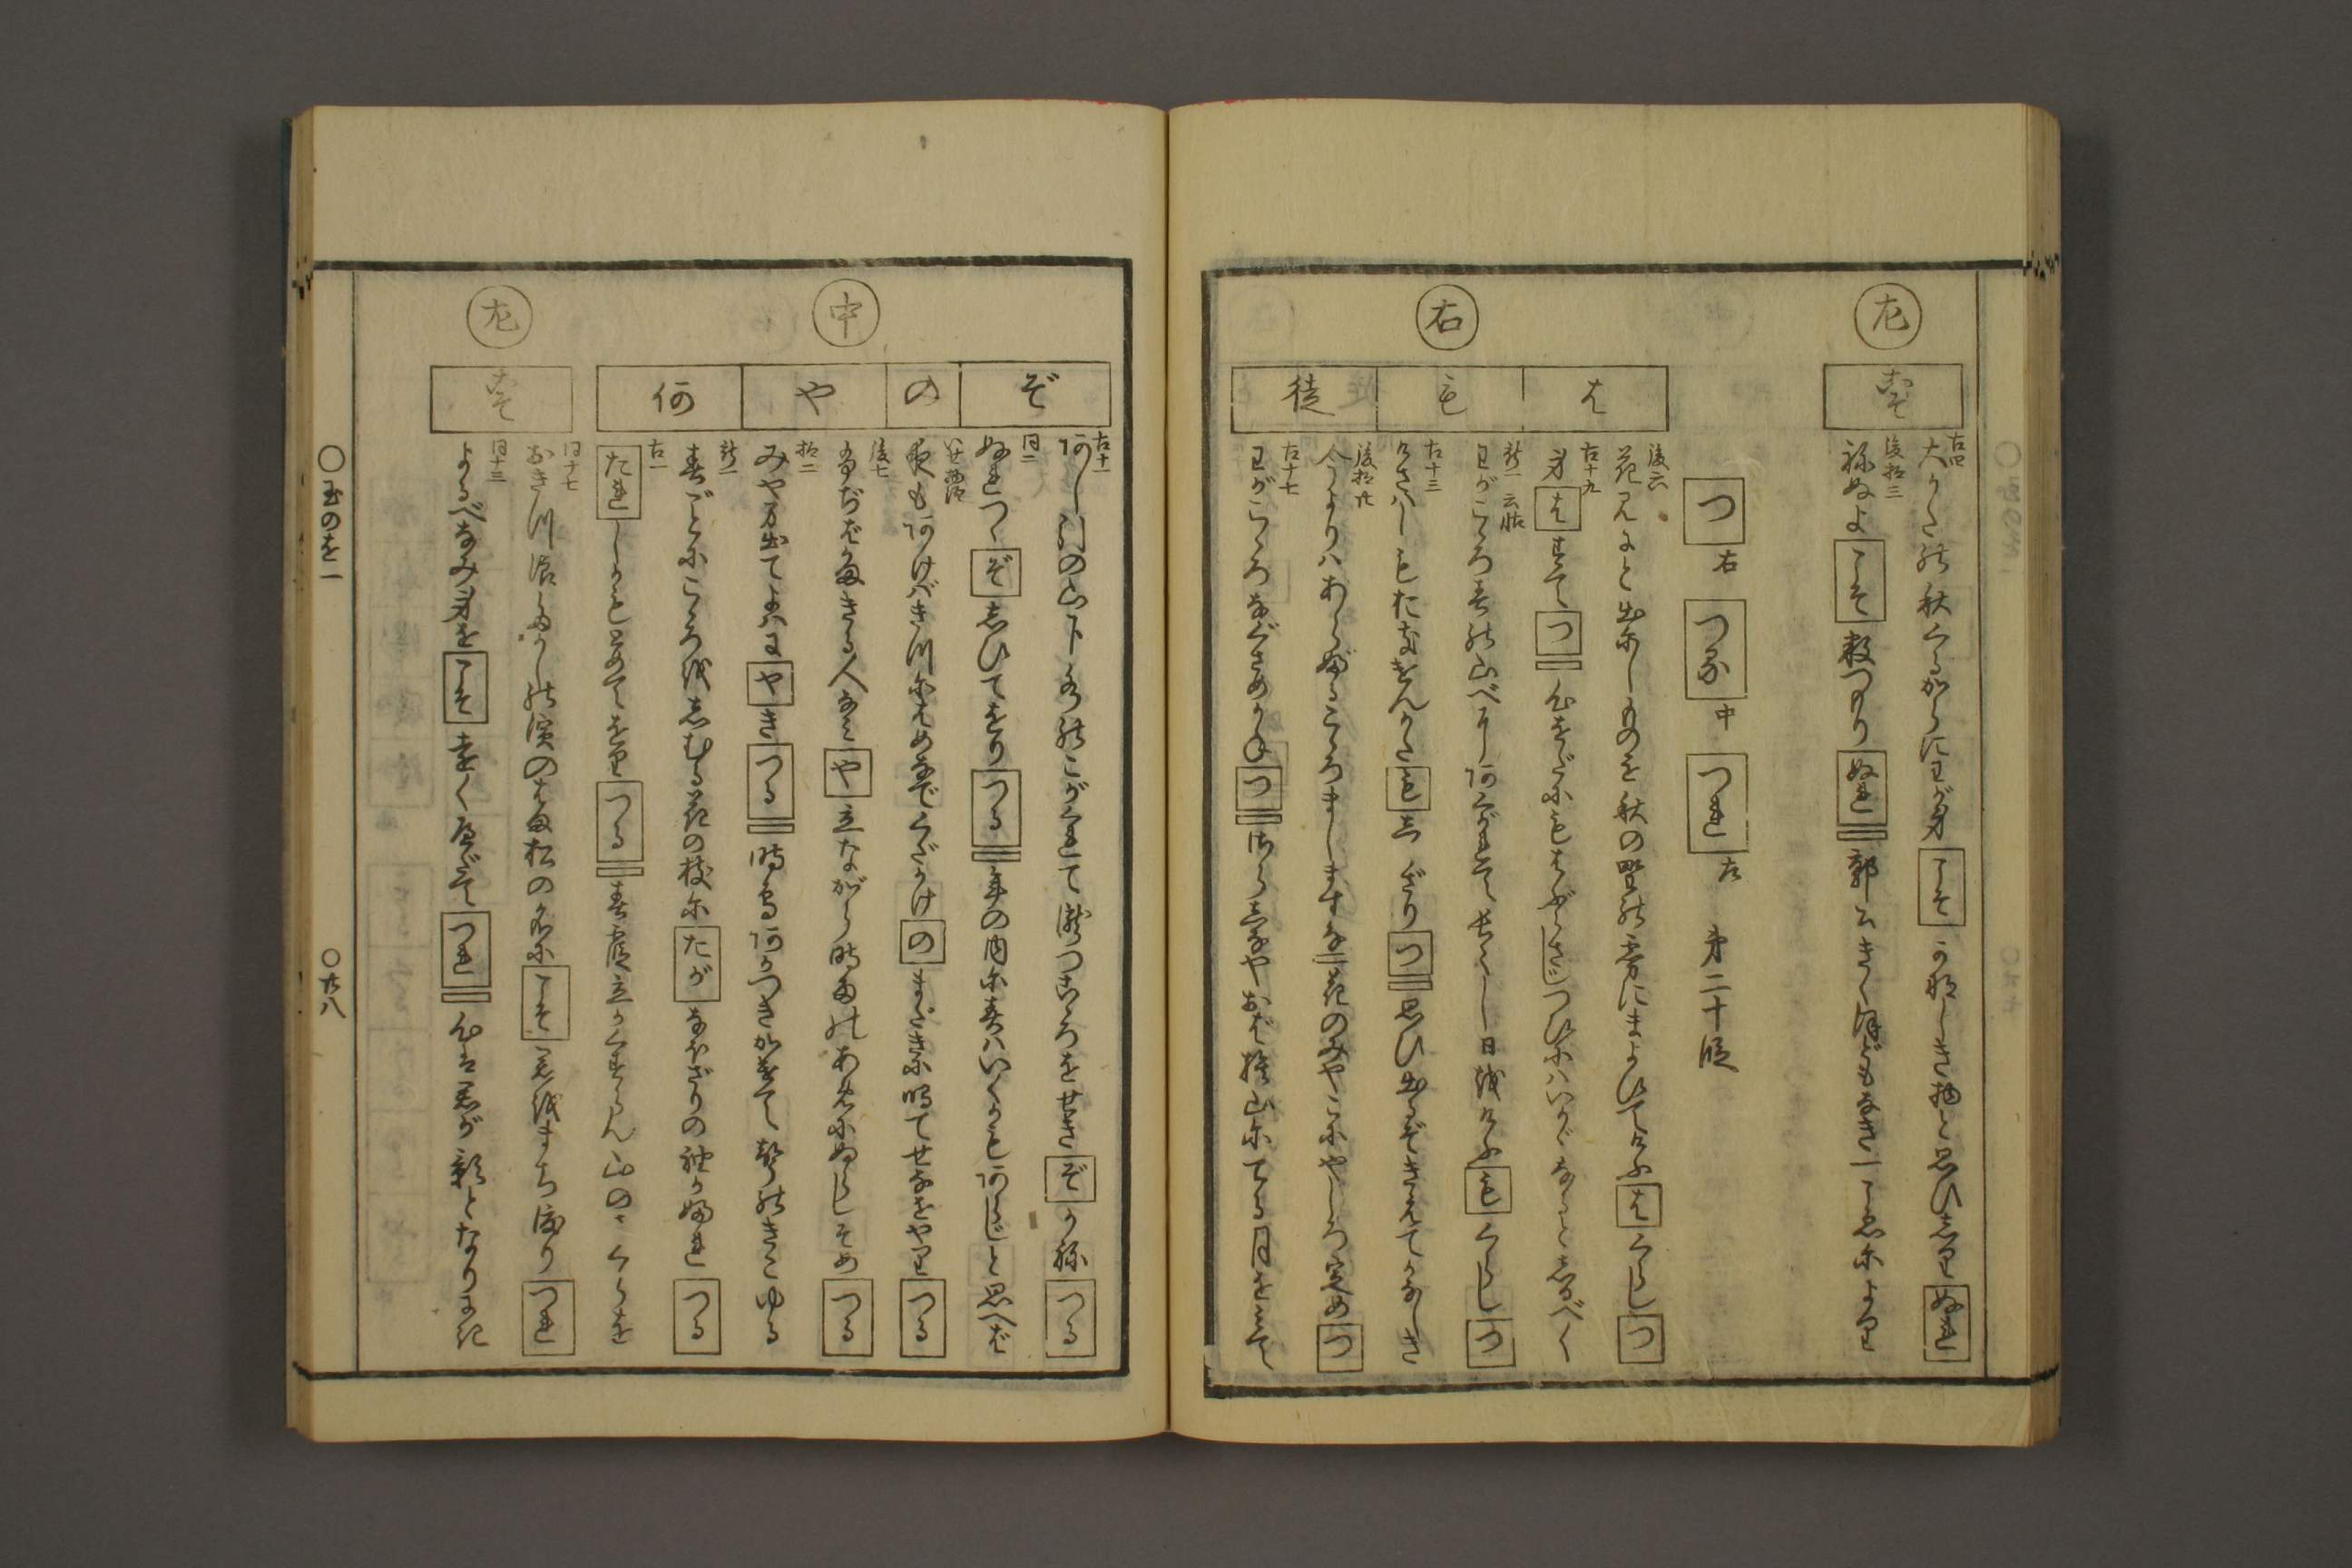 左
こそ
古四
大かたの秋くるからにわが身こそかなしき物と思ひしりぬれ
後拾三
ねぬよこそ数つもりぬれ郭公きくほどもなき一こゑによりて
つ 右 つる 中 つれ 左 第二十段
右
は
も
徒
後六
花見にと出にしものを秋の野の霧にまよひてけふはくらしつ
古十九
身はすてつ心をだにもはふらさじつひにはいかゞなるとしるべく
新一
わがこゝろ春の山べにあくがれてながくし日をけふもくらしつ
古十三
けさはしもおきけんかたもしらざりつ思ひ出るぞきえてかなしき
後拾廿
今よりはあらぶるこゝろましますな花のみやこにやしろ定めつ
古十七
わがこゝろなぐさめかねつさらしなやおば捨山にてる月をみて
中
ぞ
の
や
何
古十一
あし引の山下水のこがくれて瀧つこゝろをせきぞかねつる
同二
ぬれつゝぞしひてをりつる年の内に春はいくかもあらじと思へば
いせ物語
夜も明けばきつにはめなでくだかけのまだきに鳴てせなをやりつる
後七
をみなへし
拾二
みやま出てよはにやきつる時鳥あかつきかけて聲のきこゆる
新一
春ごとにこゝろをしむる花の枝にたがなほざりの袖かふれつる
古一
たれしかもとめてをりつる春霞立かくすらん山のさくらを
左
こそ
同十七
おきつ浪たかしの濱のはま松の名にこそ君をまちわたりつれ
同十三
よるべなみ身をこそ遠くへだてつれ心は君が影となりにき
○玉のを一
○廿八